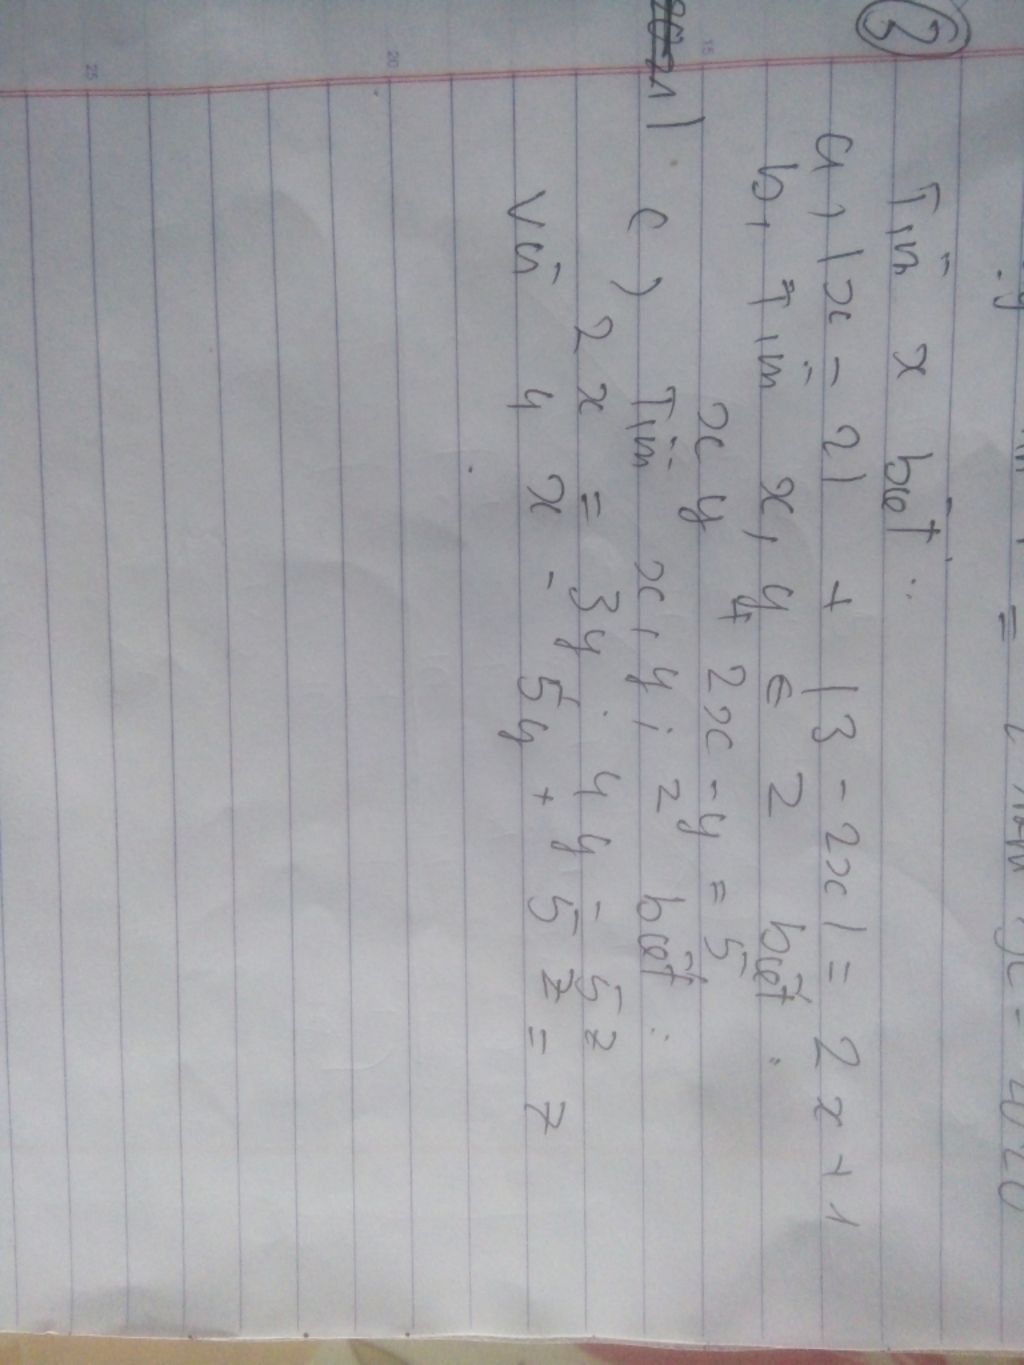 ③ Tìm x biết:
a, |x - 2| + |3 - 2x| = 2x + 1
b, Tìm x, y ∈ Z biết.
xy + 2x - y = 5
c) Tìm x, y; z biết:
2x = 3y; 4y = 5z
và 4x - 5y + 5z = 7
15
20
25